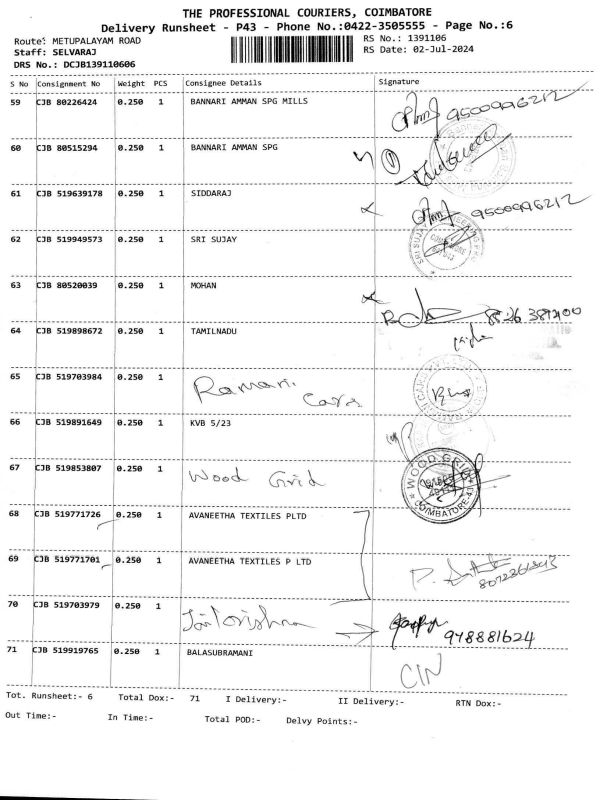 THE PROFESSIONAL COURIERS, COIMBATORE
Delivery Runsheet - P43 - Phone No.:0422-3505555 - Page No.:6
Route: METUPALAYAM ROAD RS No.: 1391106
Staff: SELVARAJ RS Date: 02-Jul-2024
DRS No.: DCJB139110606
S No Consignment No Weight PCS Consignee Details Signature
59 CJB 80226424 0.250 1 BANNARI AMMAN SPG MILLS 9500996212
60 CJB 80515294 0.250 1 BANNARI AMMAN SPG
61 CJB 519639178 0.250 1 SIDDARAJ 9500996212
62 CJB 519949573 0.250 1 SRI SUJAY
63 CJB 80520039 0.250 1 MOHAN
64 CJB 519898672 0.250 1 TAMILNADU
65 CJB 519703984 0.250 1 Ramani Cars
66 CJB 519891649 0.250 1 KVB 5/23
67 CJB 519853807 0.250 1 Wood Grid WOOD GRID COIMBATORE
68 CJB 519771726 0.250 1 AVANEETHA TEXTILES PLTD
69 CJB 519771701 0.250 1 AVANEETHA TEXTILES P LTD
70 CJB 519703979 0.250 1 978881624
71 CJB 519919765 0.250 1 BALASUBRAMANI CIN
Tot. Runsheet:- 6 Total Dox:- 71 I Delivery:- II Delivery:- RTN Dox:-
Out Time:- In Time:- Total POD:- Delvy Points:-